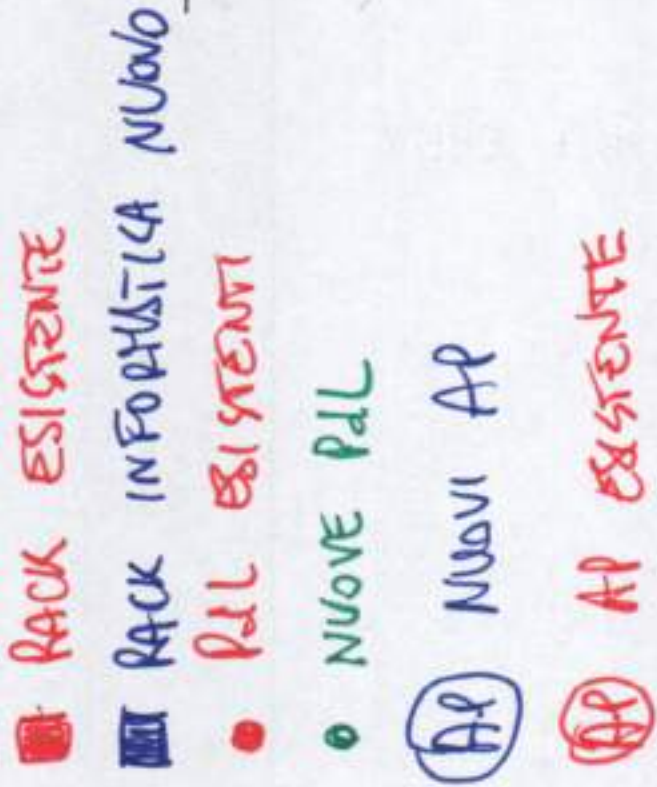 RACK ESISTENTE
RACK INFORMATICA NUOVO
PdL ESISTENTI
NUOVE PdL
AP NUOVI AP
AP AP ESISTENTE